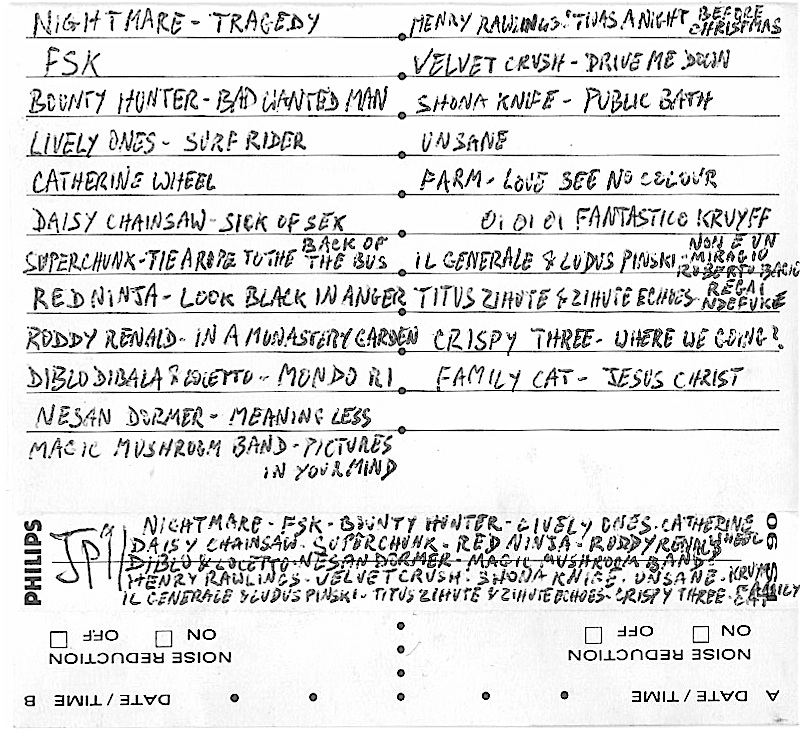 NIGHTMARE - TRAGEDY
FSK
BOUNTY HUNTER - BAD WANTED MAN
LIVELY ONES - SURF RIDER
CATHERINE WHEEL
DAISY CHAINSAW - SICK OF SEX
SUPERCHUNK - TIE A ROPE TO THE BACK OF THE BUS
RED NINJA - LOOK BLACK IN ANGER
RODDY RENALD - IN A MONASTERY GARDEN
DIBLO DIBALA & LOLETTO - MONDO RI
NESAN DORMER - MEANING LESS
MAGIC MUSHROOM BAND - PICTURES
IN YOUR MIND
HENRY RAWLINGS: 'TWAS A NIGHT BEFORE CHRISTMAS
VELVET CRUSH - DRIVE ME DOWN
SHONA KNIFE - PUBLIC BATH
UNSANE
FARM - LOVE SEE NO COLOUR
OI OI OI FANTASTICO KRUYFF
IL GENERALE & LUDUS PINSKI - NON È UN MIRAGIO ROBERTO BAGIO
TITUS ZIHUTE & ZIHUTE ECHOES - REGAI NDEFUKE
CRISPY THREE - WHERE WE GOING?
FAMILY CAT - JESUS CHRIST
PHILIPS
JP11
NIGHTMARE - FSK - BOUNTY HUNTER - LIVELY ONES - CATHERINE WHEEL
DAISY CHAINSAW - SUPERCHUNK - RED NINJA - RODDY RENALD
DIBLO & LOLETTO - NESAN DORMER - MAGIC MUSHROOM BAND
HENRY RAWLINGS - VELVET CRUSH - SHONA KNIFE - UNSANE - KRUYFF
IL GENERALE & LUDUS PINSKI - TITUS ZIHUTE & ZIHUTE ECHOES - CRISPY THREE - FAMILY CAT
90
A DATE / TIME
NOISE REDUCTION
ON OFF
B DATE / TIME
NOISE REDUCTION
ON OFF